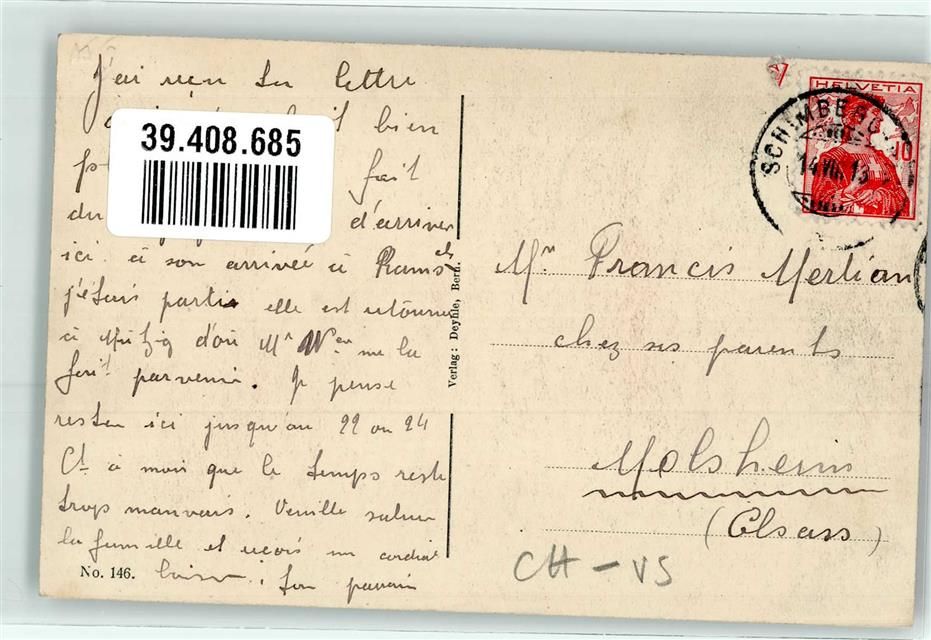 J'ai reçu ta lettre
39.408.685
bien
fait
du d'arriver
ici. à son arrivée à
j'étais partie elle est retournée
à Mutzig d'où Mr me la
fait parvenir. Je pense
rester ici jusqu'au 22 ou 24
Ct à moin que le temps reste
trop mauvais. Veuille saluer
la famille et reçois un cordial
baiser; ton parrain
No. 146.
Verlag: Deyhle, Bern.
HELVETIA
10
SCHIMBERG
14 VIII 13
Mr Francis Merlian
chez ses parents
Molsheim
(Elsass)
CH - VS